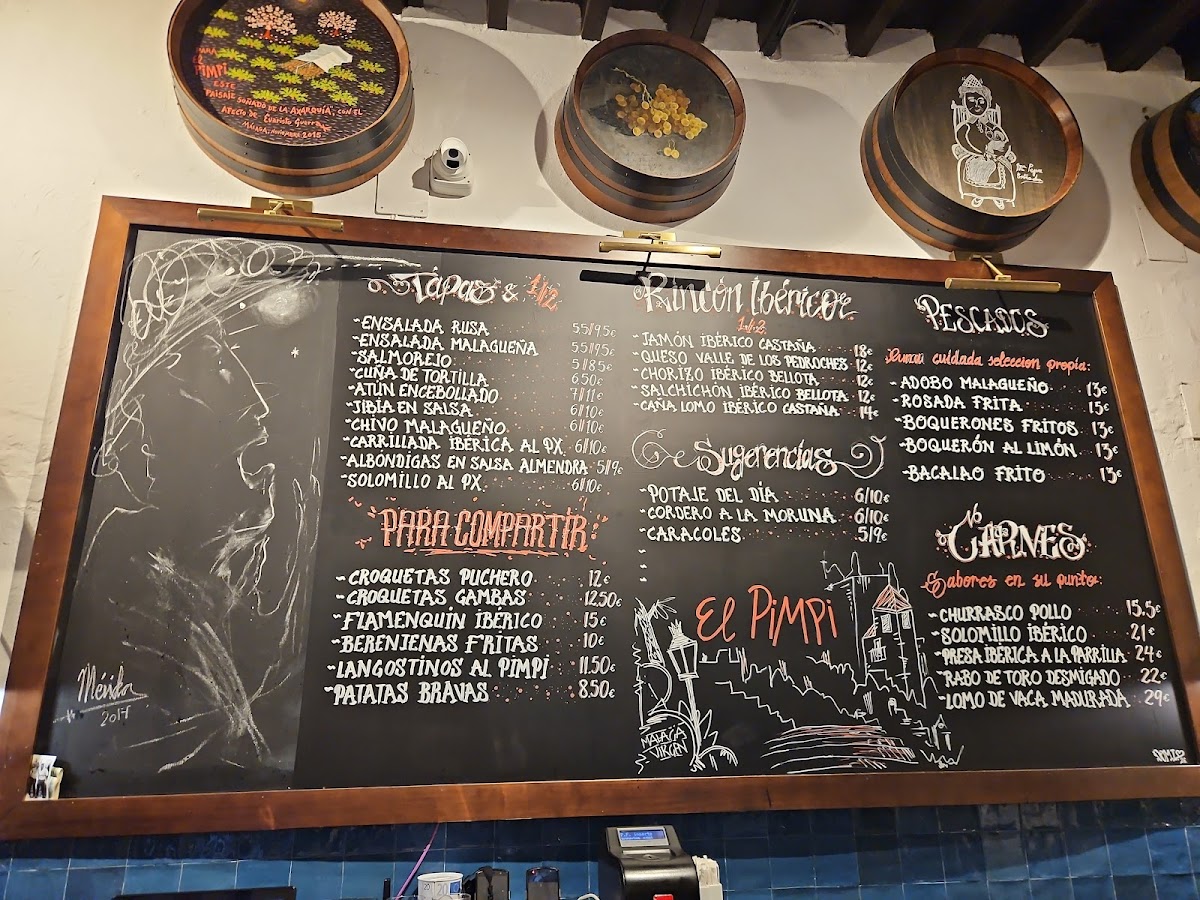 PARA
EL
PIMPI
ESTE
PAISAJE SOÑADO DE LA AXARQUÍA, CON EL
AFECTO DE Evaristo Guerra
MÁLAGA, NOVIEMBRE 2015
Tapas & 1/2
~ENSALADA RUSA 5.5//9.5€
~ENSALADA MALAGUEÑA 5.5//9.5€
~SALMOREJO 5//8.5€
~CUÑA DE TORTILLA 6.50€
~ATÚN ENCEBOLLADO 7//11€
~JIBIA EN SALSA 6//10€
~CHIVO MALAGUEÑO 6//10€
~CARRILLADA IBÉRICA AL PX 6//10€
~ALBÓNDIGAS EN SALSA ALMENDRA 5//9€
~SOLOMILLO AL PX 6//10€
PARA COMPARTIR
~CROQUETAS PUCHERO 12€
~CROQUETAS GAMBAS 12.50€
~FLAMENQUÍN IBÉRICO 15€
~BERENJENAS FRITAS 10€
~LANGOSTINOS AL PIMPI 11.50€
~PATATAS BRAVAS 8.50€
Rincón Ibérico
1/2
~JAMÓN IBÉRICO CASTAÑA 18€
~QUESO VALLE DE LOS PEDROCHES 12€
~CHORIZO IBÉRICO BELLOTA 12€
~SALCHICHÓN IBÉRICO BELLOTA 12€
~CAÑA LOMO IBÉRICO CASTAÑA 14€
Sugerencias
~POTAJE DEL DÍA 6//10€
~CORDERO A LA MORUNA 6//10€
~CARACOLES 5//9€
El PiMPi
MÁLAGA
VIRGEN
PESCADOS
cuidada seleccion propia:
~ADOBO MALAGUEÑO 13€
~ROSADA FRITA 15€
~BOQUERONES FRITOS 13€
~BOQUERÓN AL LIMÓN 13€
~BACALAO FRITO 13€
CARNES
Sabores en su punto:
~CHURRASCO POLLO 15.5€
~SOLOMILLO IBÉRICO 21€
~PRESA IBÉRICA A LA PARRILLA 24€
~RABO DE TORO DESMIGADO 22€
~LOMO DE VACA MADURADA 29€
Mérida
2017